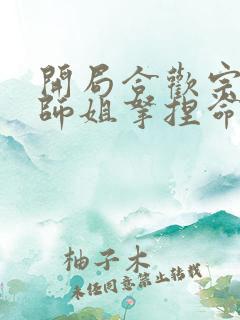 開局合歡宗
師姐拿捏命
柚子木
未经同意禁止转载